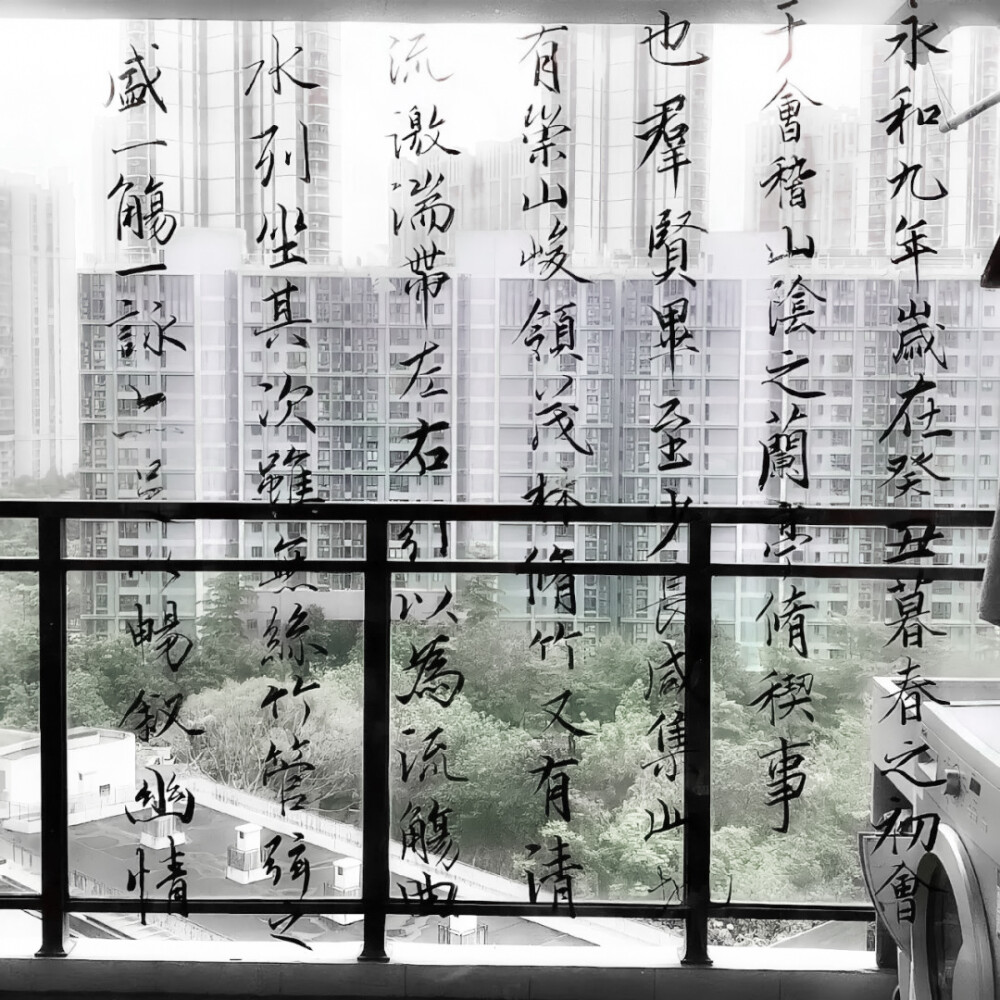 永和九年歲在癸丑暮春之初會
于會稽山陰之蘭亭脩稧事
也羣賢畢至少長咸集山地
有崇山峻領茂林脩竹又有清
流激湍帶左右引以為流觴曲
水列坐其次雖無絲竹管弦之
盛一觴一詠亦足以暢叙幽情